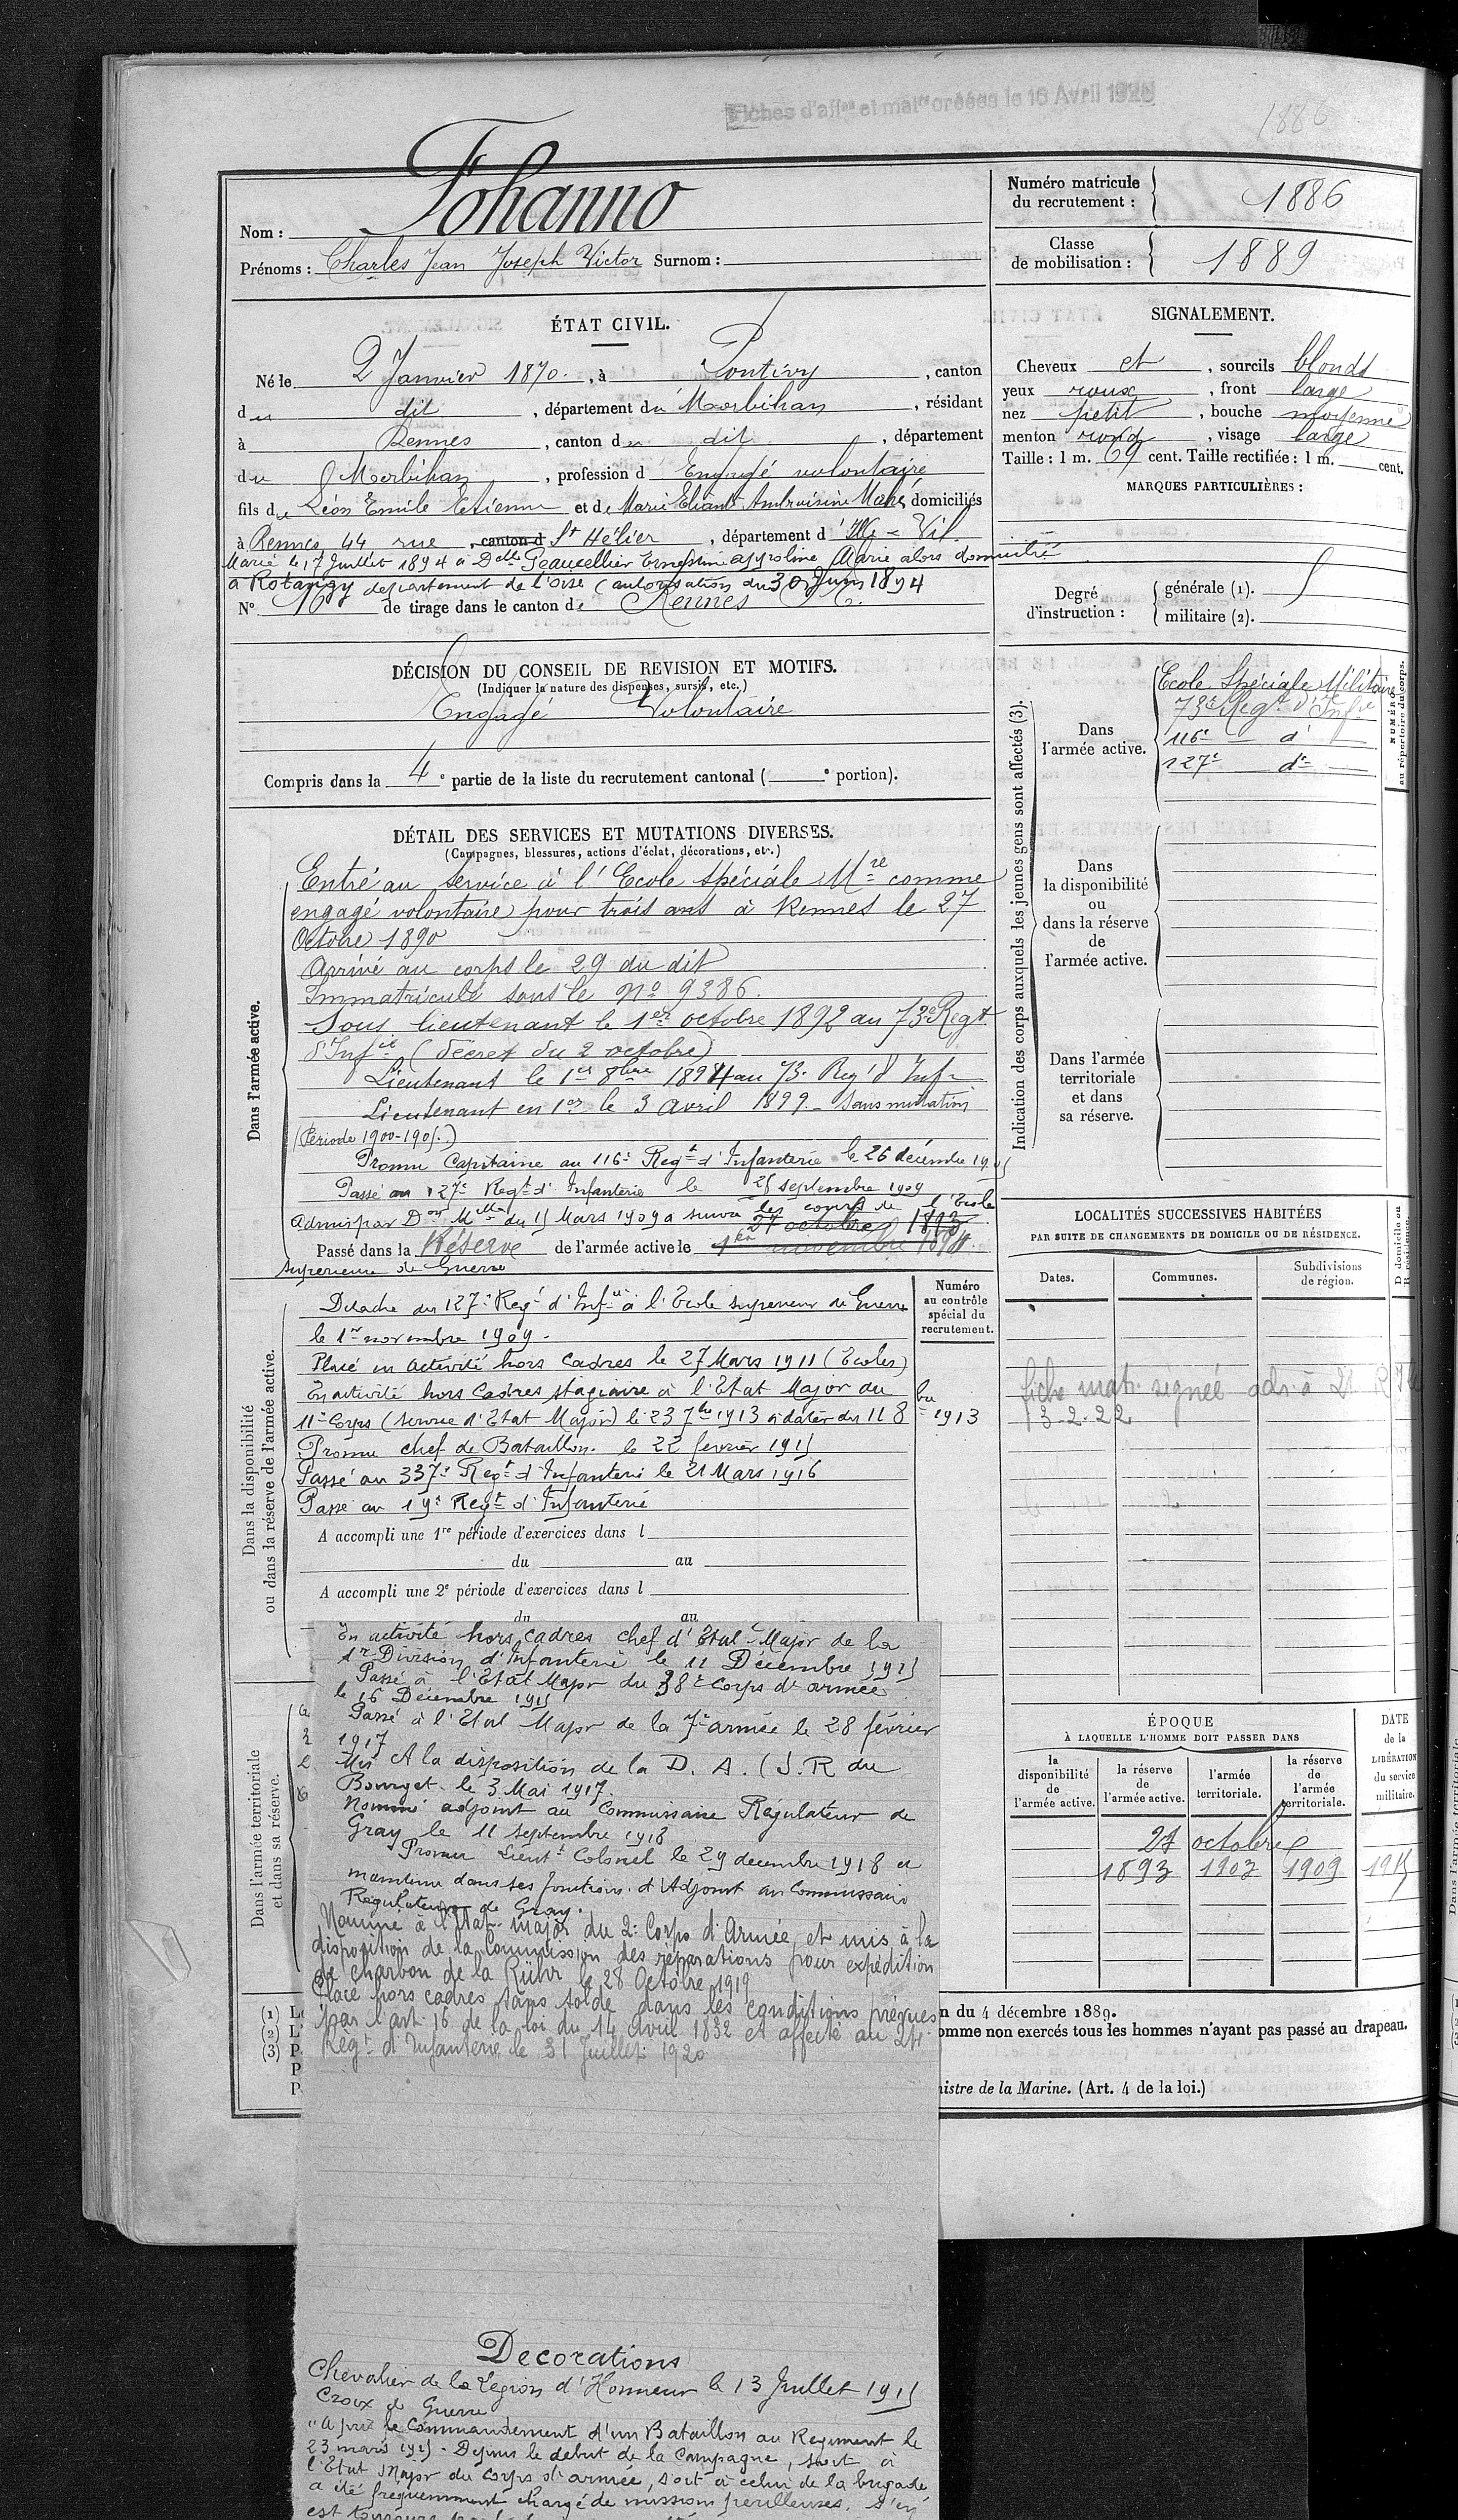 Fiches d'aff^on et mat^le créées le 16 Avril 1928
1886
Nom : Johanno
Prénoms : Charles Jean Joseph Victor Surnom :
Numéro matricule du recrutement : 1886
Classe de mobilisation : 1889
ÉTAT CIVIL.
Né le 2 Janvier 1870, à Pontivy, canton
du dit, département du Morbihan, résidant
à Rennes, canton du dit, département
du Morbihan, profession d Engagé volontaire
fils de Léon Emile Etienne et de Marie Ambroisine Mahé, domiciliés
à Rennes 44 rue, canton d St Hélier, département d'Ille-Vil.
Marié le 17 Juillet 1894 à Delle Geaucellier Ernestine appoline Marie alors domiciliée
à Rotangy département de l'Oise (autorisation du 30 Juin 1894
N° 16 de tirage dans le canton de Rennes
SIGNALEMENT.
Cheveux et, sourcils blonds
yeux roux, front large
nez petit, bouche moyenne
menton rond, visage large
Taille : 1 m. 69 cent. Taille rectifiée : 1 m. cent.
MARQUES PARTICULIÈRES :
Degré d'instruction : générale (1). 5
militaire (2).
DÉCISION DU CONSEIL DE REVISION ET MOTIFS.
(Indiquer la nature des dispenses, sursis, etc.)
Engagé Volontaire
Compris dans la 4e partie de la liste du recrutement cantonal ( e portion).
Indication des corps auxquels les jeunes gens sont affectés (3).
NUMÉROS au répertoire du corps.
Dans l'armée active.
Ecole Spéciale Militaire
73e Regt d'Infie
116e — d°
127e — d°
Dans la disponibilité ou dans la réserve de l'armée active.
Dans l'armée territoriale et dans sa réserve.
DÉTAIL DES SERVICES ET MUTATIONS DIVERSES.
(Campagnes, blessures, actions d'éclat, décorations, etc.)
Dans l'armée active.
Entré au service à l'Ecole Spéciale Mre comme
engagé volontaire pour trois ans à Rennes le 27
Octobre 1890
Arrivé au corps le 29 du dit
Immatriculé sous le N° 9386.
Sous lieutenant le 1er octobre 1892 au 73e Regt
d'Infie (Décret du 2 octobre)
Lieutenant le 1er 8bre 1894 au 73e Regt d'Infie
Lieutenant en 1er le 3 Avril 1899 - sans mutation
(Période 1900-1905.)
Promu Capitaine au 116e Regt d'Infanterie le 26 décembre 1905
Passé au 127e Regt d'Infanterie le 25 septembre 1909
Admis par Don Mlle du 15 Mars 1909 à suivre les cours de l'Ecole
27 octobre 1893
Passé dans la Réserve de l'armée active le 1er novembre 1894.
Supérieure de Guerre
Dans la disponibilité ou dans la réserve de l'armée active.
Numéro au contrôle spécial du recrutement.
Détaché du 127e Regt d'Infie à l'Ecole supérieure de Guerre
le 1er novembre 1909.
Placé en activité hors Cadres le 27 Mars 1911 (Ecoles)
En activité hors Cadres stagiaire à l'Etat Major du
11e Corps (Service d'Etat Major) le 23 7bre 1913 à dater du 11 8bre 1913
Promu chef de Bataillon le 22 février 1915
Passé au 337e Regt d'Infanterie le 21 Mars 1916
Passé au 19e Regt d'Infanterie
A accompli une 1re période d'exercices dans l
du au
A accompli une 2e période d'exercices dans l
du au
En activité hors cadres chef d'Etat Major de la
1re Division d'Infanterie le 11 Décembre 1915
Passé à l'Etat Major du 38e Corps d'armée
le 16 Décembre 1915
Passé à l'Etat Major de la 7e armée le 28 février
1917
Mis A la disposition de la D. A. (S. R du
Bourget le 3 Mai 1917.
Nommé adjoint au Commissaire Régulateur de
Gray le 11 septembre 1918
Promu Lieutt Colonel le 29 décembre 1918 et
maintenu dans ses fonctions d'Adjoint au Commissaire
Régulateur de Gray.
Nommé à l'Etat-major du 2e Corps d'Armée et mis à la
disposition de la Commission des réparations pour expédition
de charbon de la Rühr le 28 Octobre 1919
Placé hors cadres sans solde dans les conditions prévues
par l'art. 16 de la loi du 14 Avril 1832 et affecté au 24e
Regt d'Infanterie le 31 Juillet 1920
Dans l'armée territoriale et dans sa réserve.
LOCALITÉS SUCCESSIVES HABITÉES
PAR SUITE DE CHANGEMENTS DE DOMICILE OU DE RÉSIDENCE.
Dates. Communes. Subdivisions de région. D domicile ou R résidence.
fiche matr. signée adr à
13-2-22
ÉPOQUE
À LAQUELLE L'HOMME DOIT PASSER DANS
la disponibilité de l'armée active.
la réserve de l'armée active.
l'armée territoriale.
la réserve de l'armée territoriale.
DATE de la LIBÉRATION du service militaire.
27 octobre
1893 1903 1909 1915
(1) L
(2) L
(3) P
P
P
n du 4 décembre 1889.
omme non exercés tous les hommes n'ayant pas passé au drapeau.
nistre de la Marine. (Art. 4 de la loi.)
Decorations
Chevalier de la Légion d'Honneur le 13 Juillet 1915
Croix de Guerre
"A pris le Commandement d'un Bataillon au Regiment le
23 mars 1915. Depuis le début de la Campagne, soit à
l'Etat Major du Corps d'armée, soit à celui de la brigade
a été fréquemment chargé de missions périlleuses, s'en
est toujours